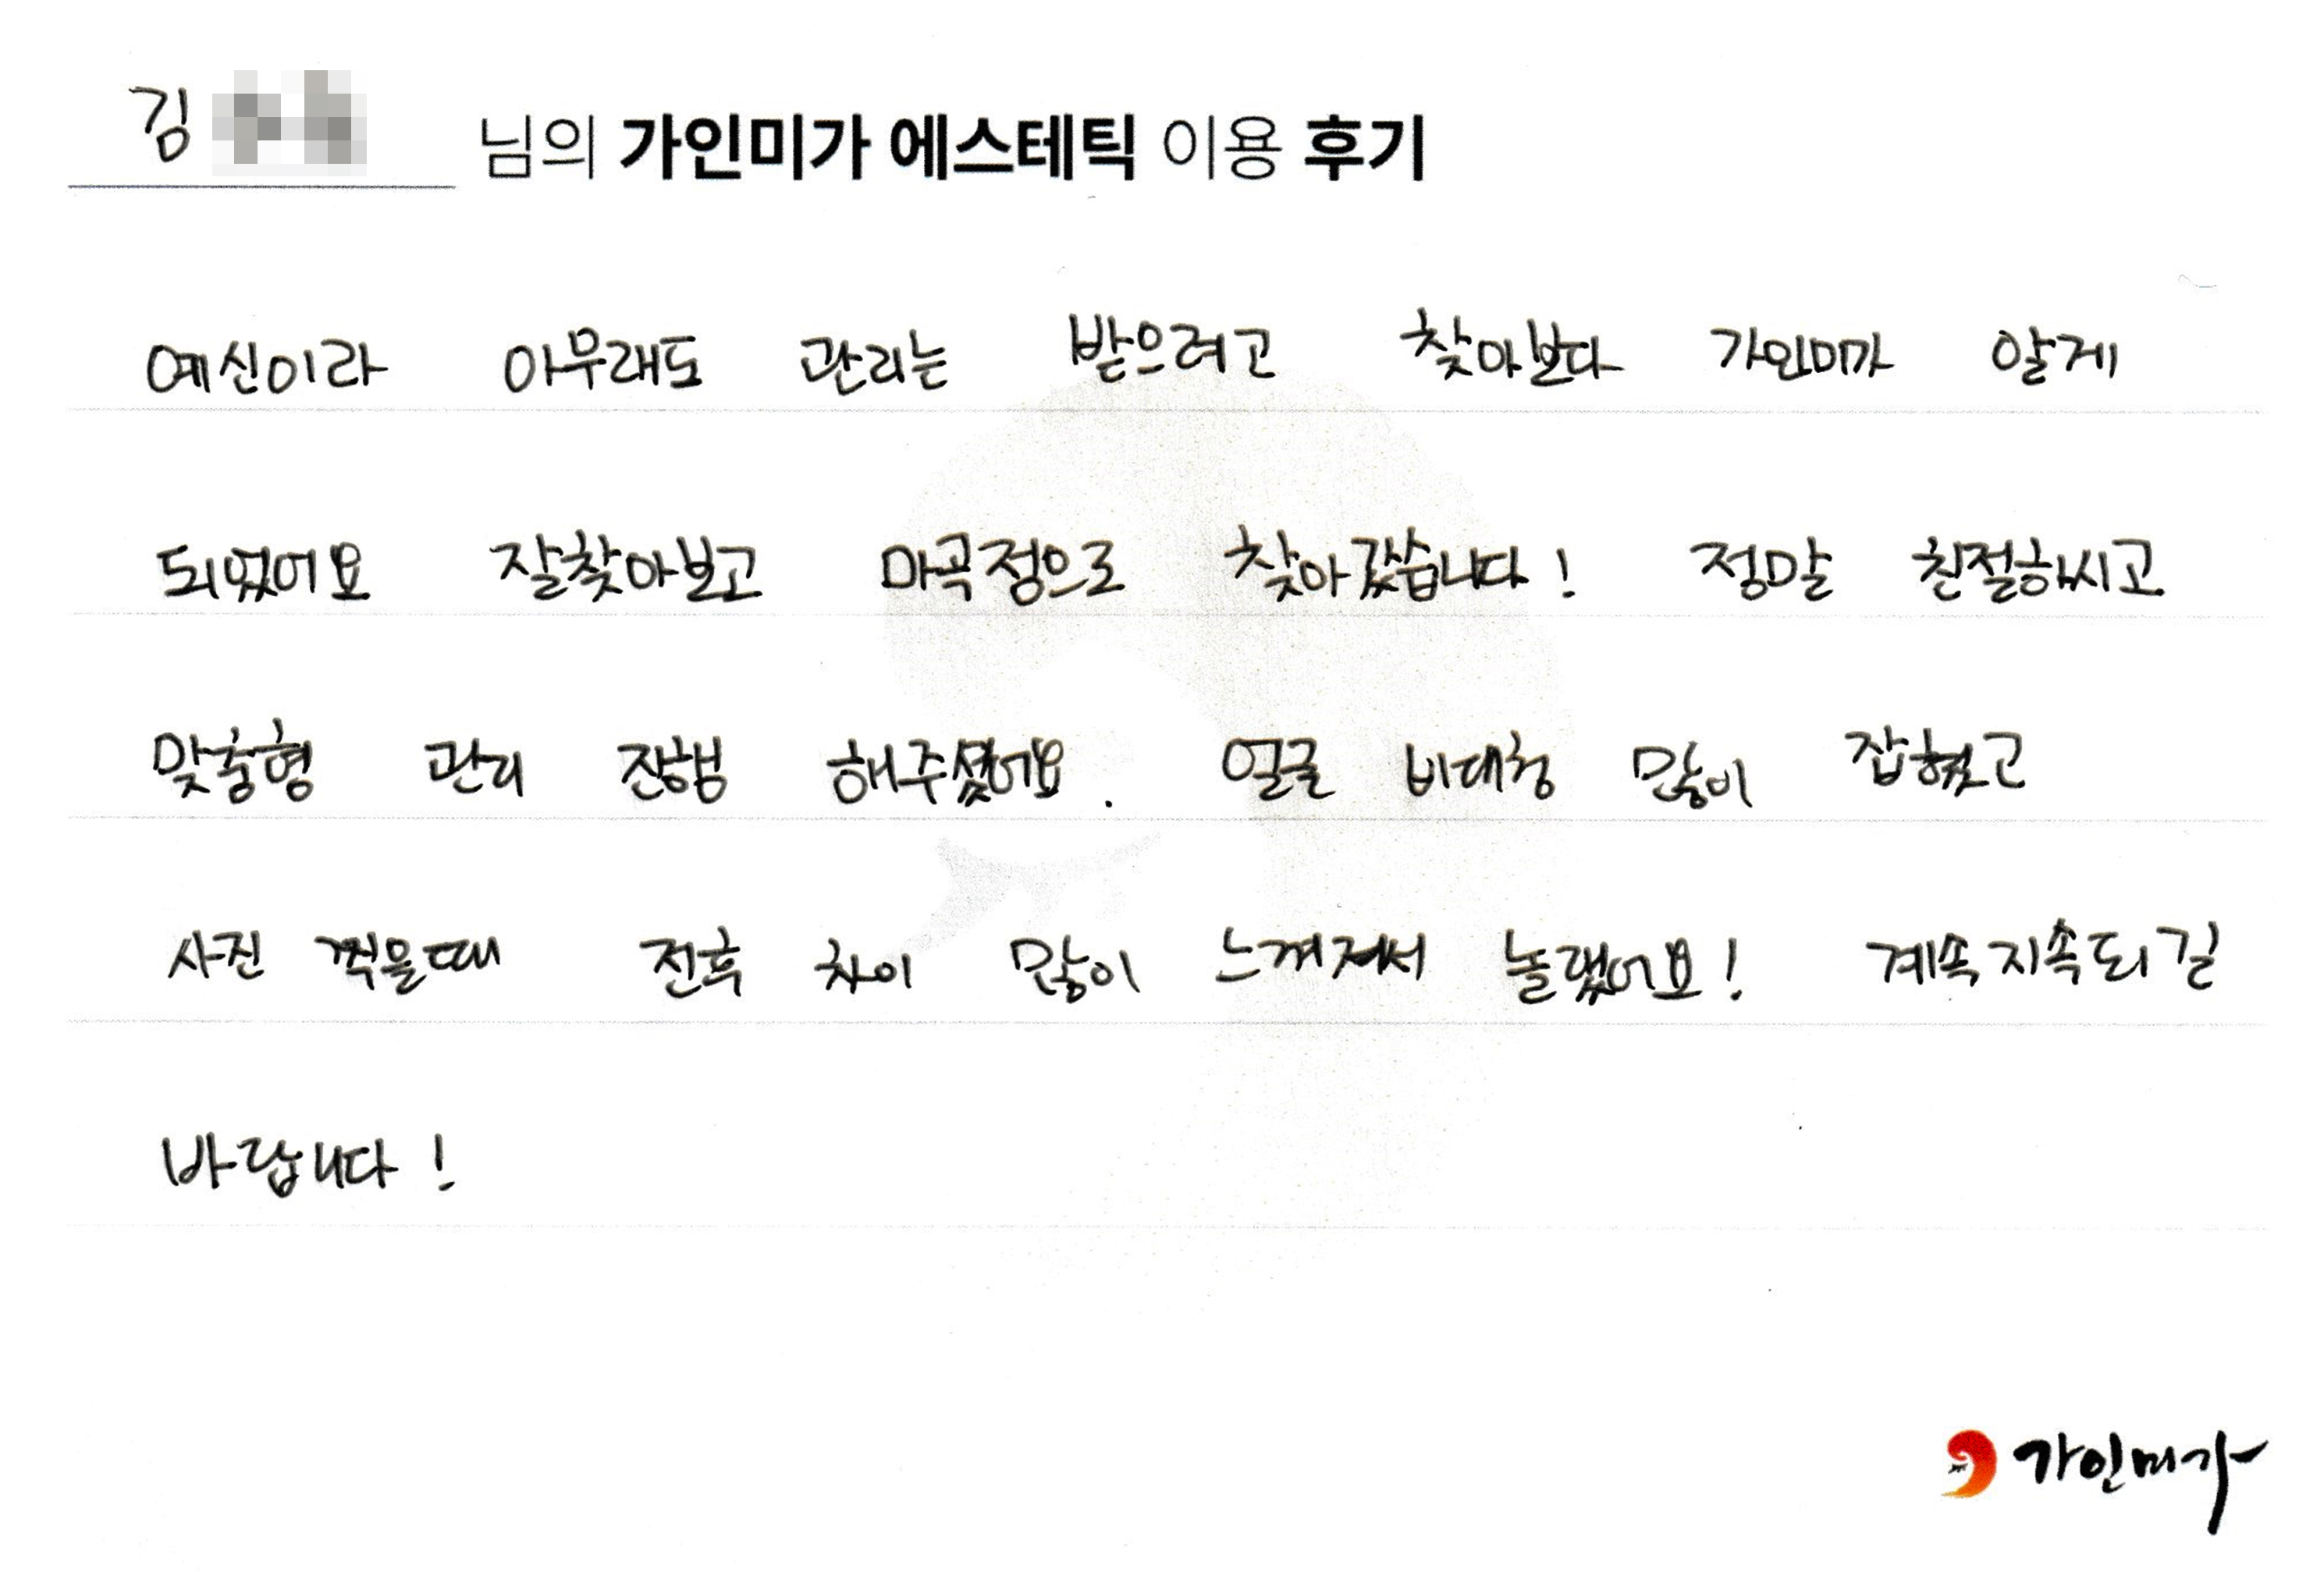 김 님의 가인미가 에스테틱 이용 후기
예신이라 아무래도 관리는 받으려고 찾아보다 가인미가 알게
되었어요 잘찾아보고 마곡점으로 찾아갔습니다! 정말 친절하시고
맞춤형 관리 진행 해주셨어요. 얼굴 비대칭 많이 잡혔고
사진 찍을때 전후 차이 많이 느껴져서 놀랬어요! 계속지속되길
바랍니다!
가인미가